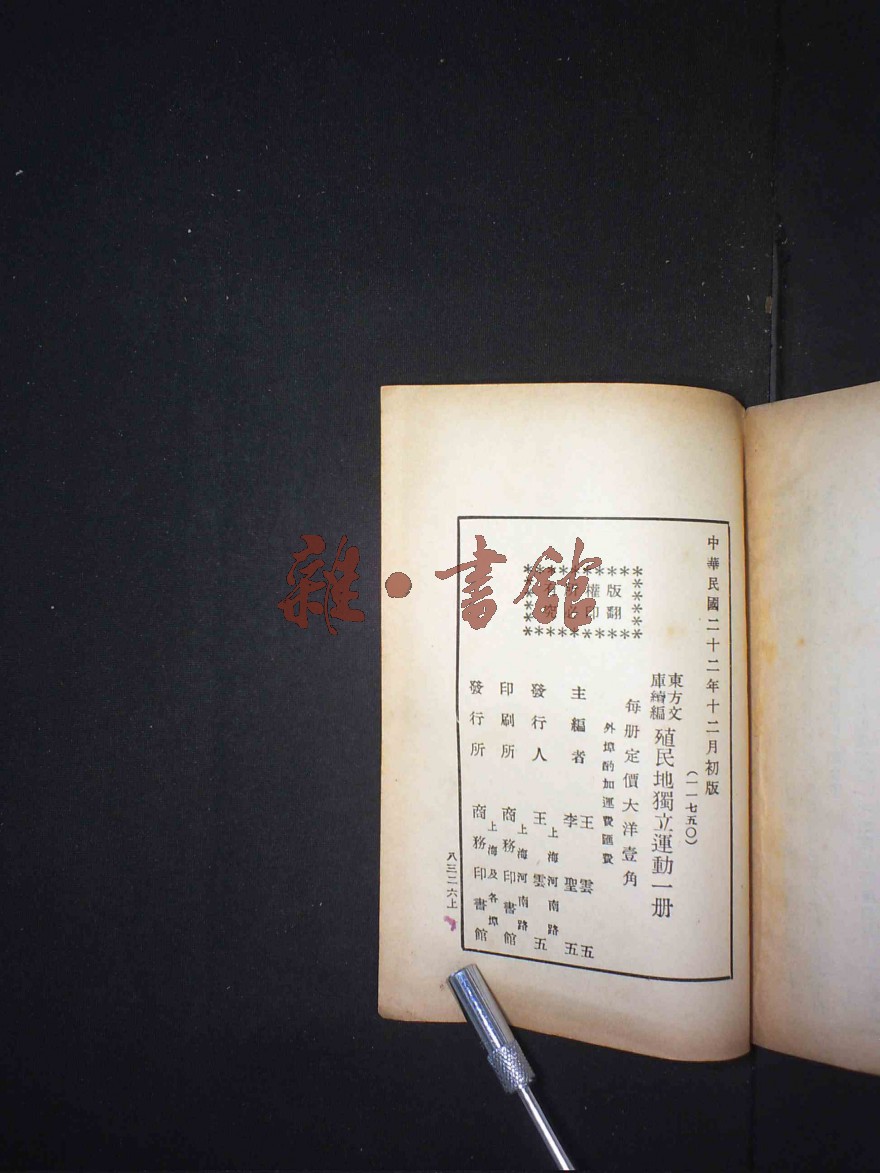 中華民國二十二年十二月初版
(一一七五〇)
東方文庫續編 殖民地獨立運動一册
每册定價大洋壹角
外埠酌加運費匯費
版權所有
翻印必究
主編者 王雲五
李聖五
上海河南路
發行人 王雲五
上海河南路
印刷所 商務印書館
上海及各埠
發行所 商務印書館
八三二六上
雜·書館